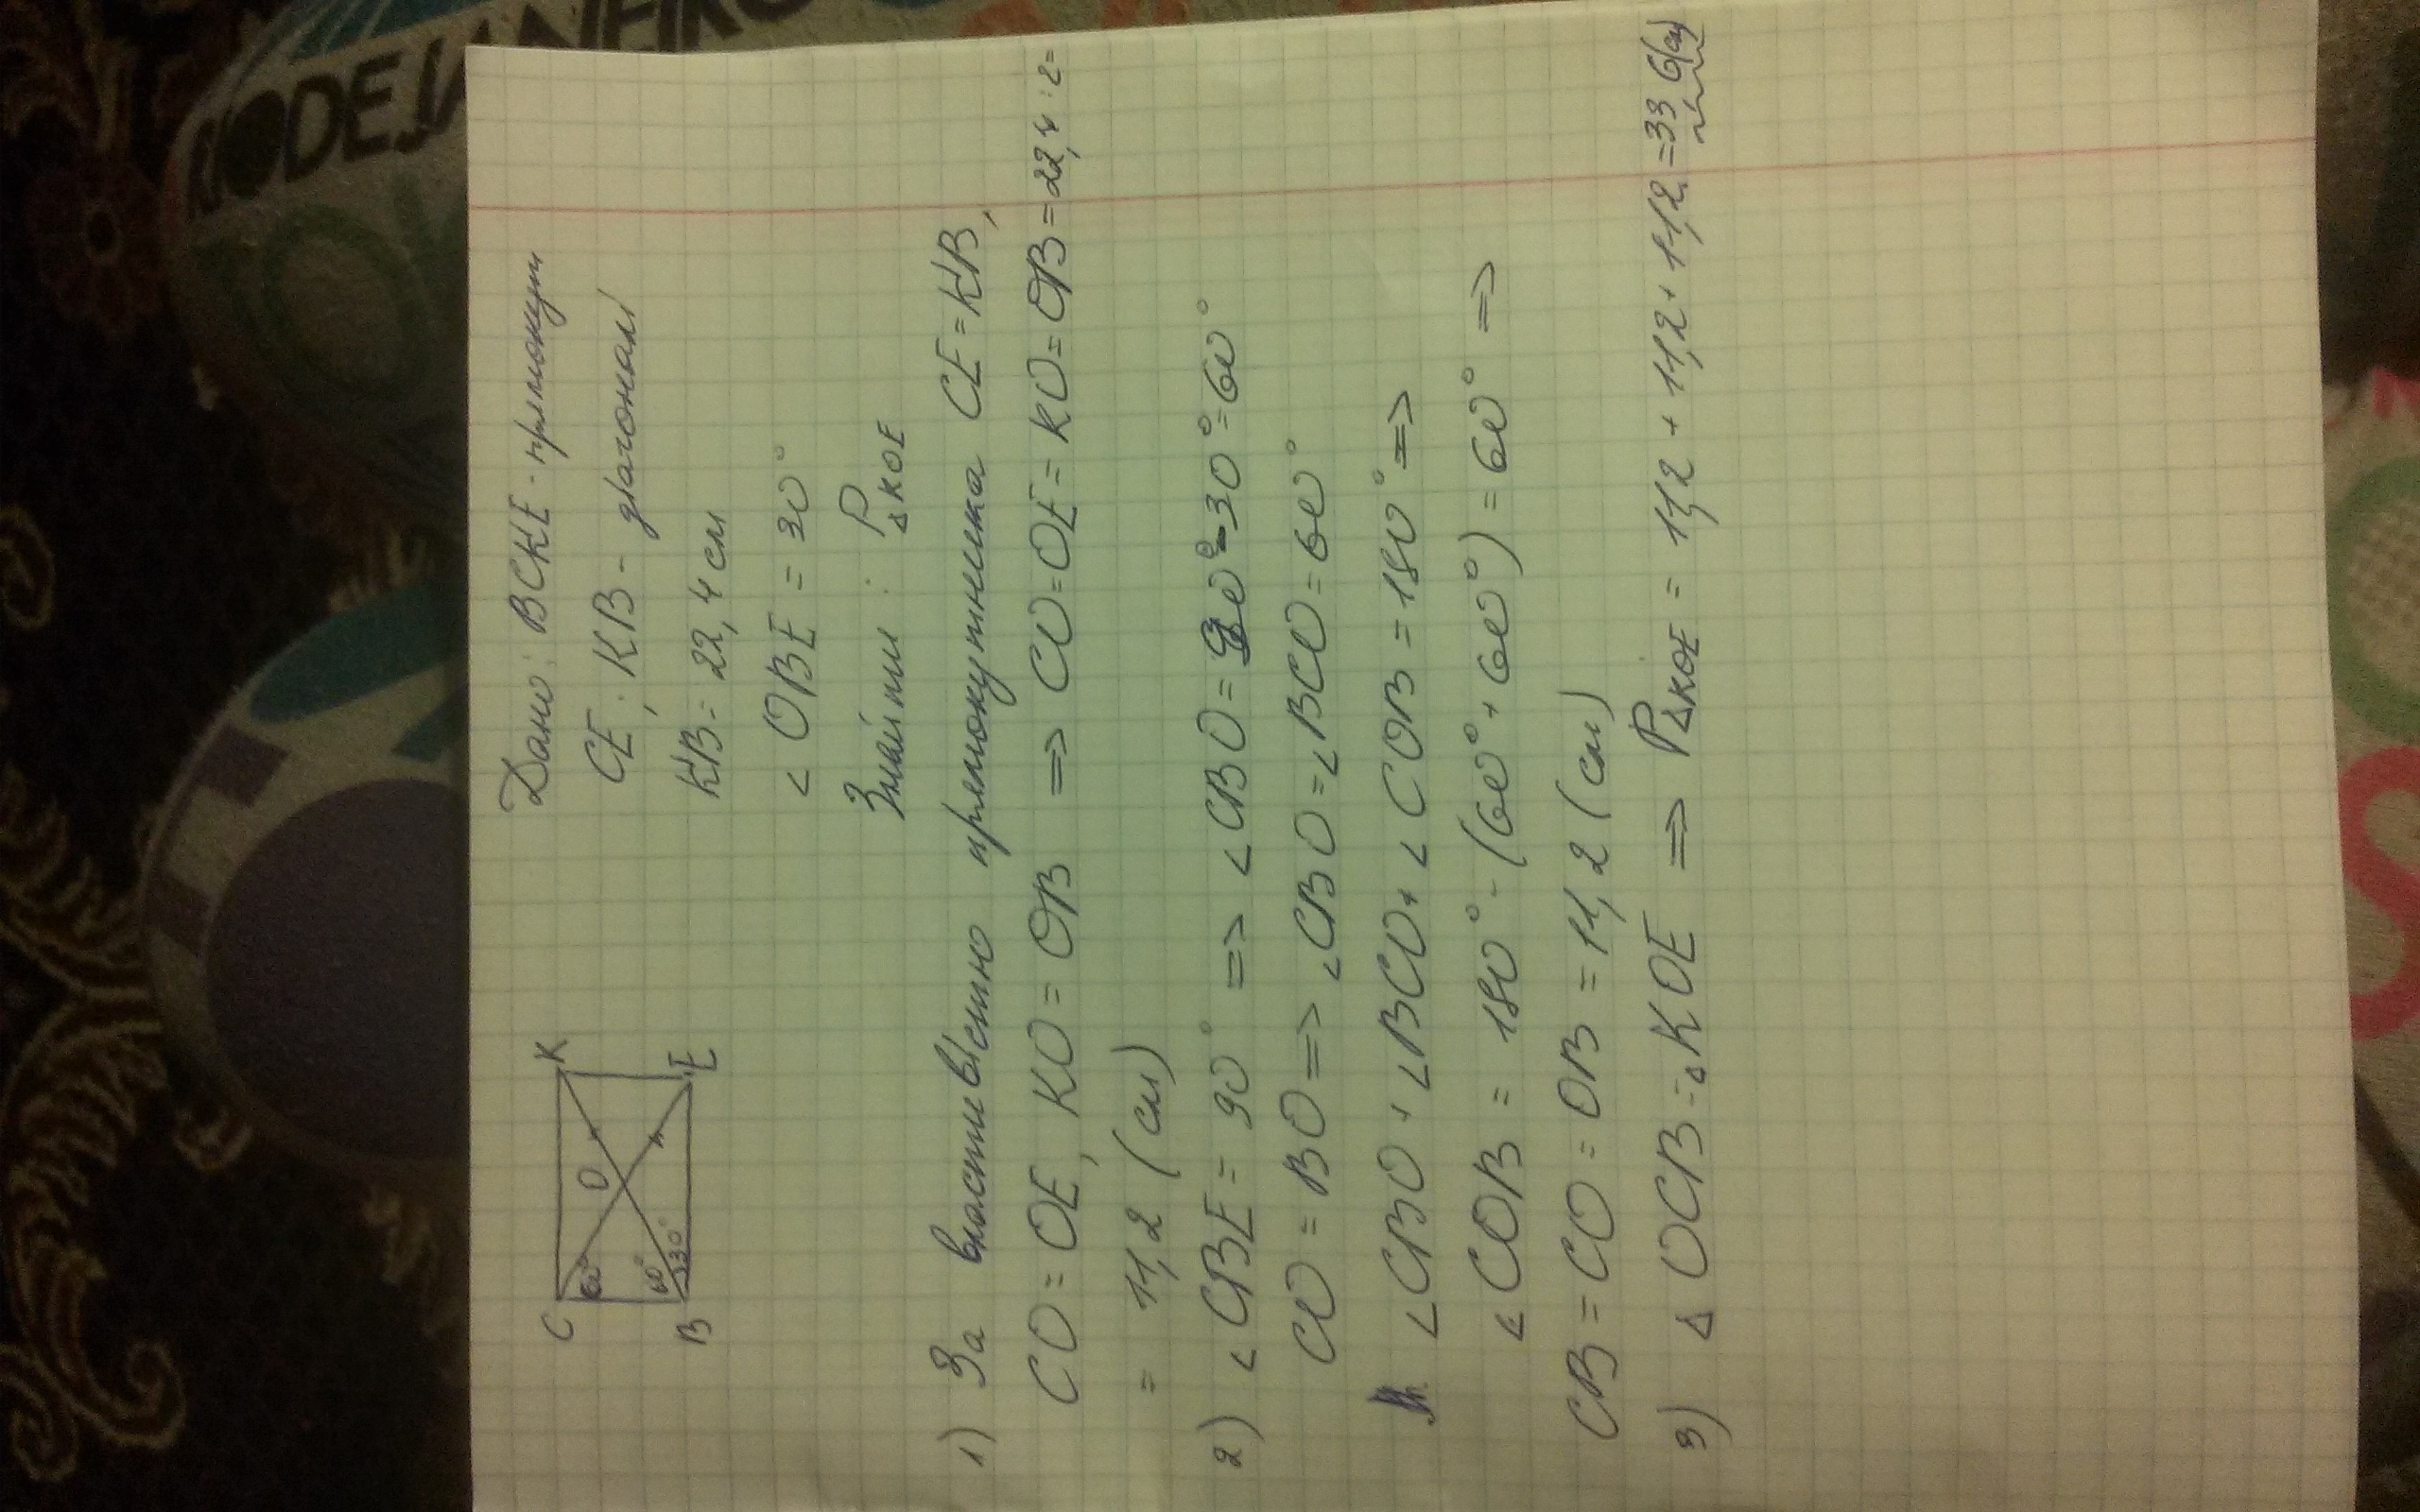 RIO DE JANEIRO
Дано: BCKE - прямокут
CE; KB - діагоналі
KB = 22,4 см
∠OBE = 30°
Знайти: P△KOE
C
K
O
B
E
60°
60°
30°
1) За властивістю прямокутника CE = KB,
CO = OE, KO = OB => CO = OE = KO = OB = 22,4 : 2 =
= 11,2 (см)
2) ∠CBE = 90° => ∠CBO = 90° - 30° = 60°
CO = BO => ∠CBO = ∠BCO = 60°
∠CBO + ∠BCO + ∠COB = 180° =>
∠COB = 180° - (60° + 60°) = 60° =>
CB = CO = OB = 11,2 (см)
3) △OCB = △KOE => P△KOE = 11,2 + 11,2 + 11,2 = 33,6 (см)